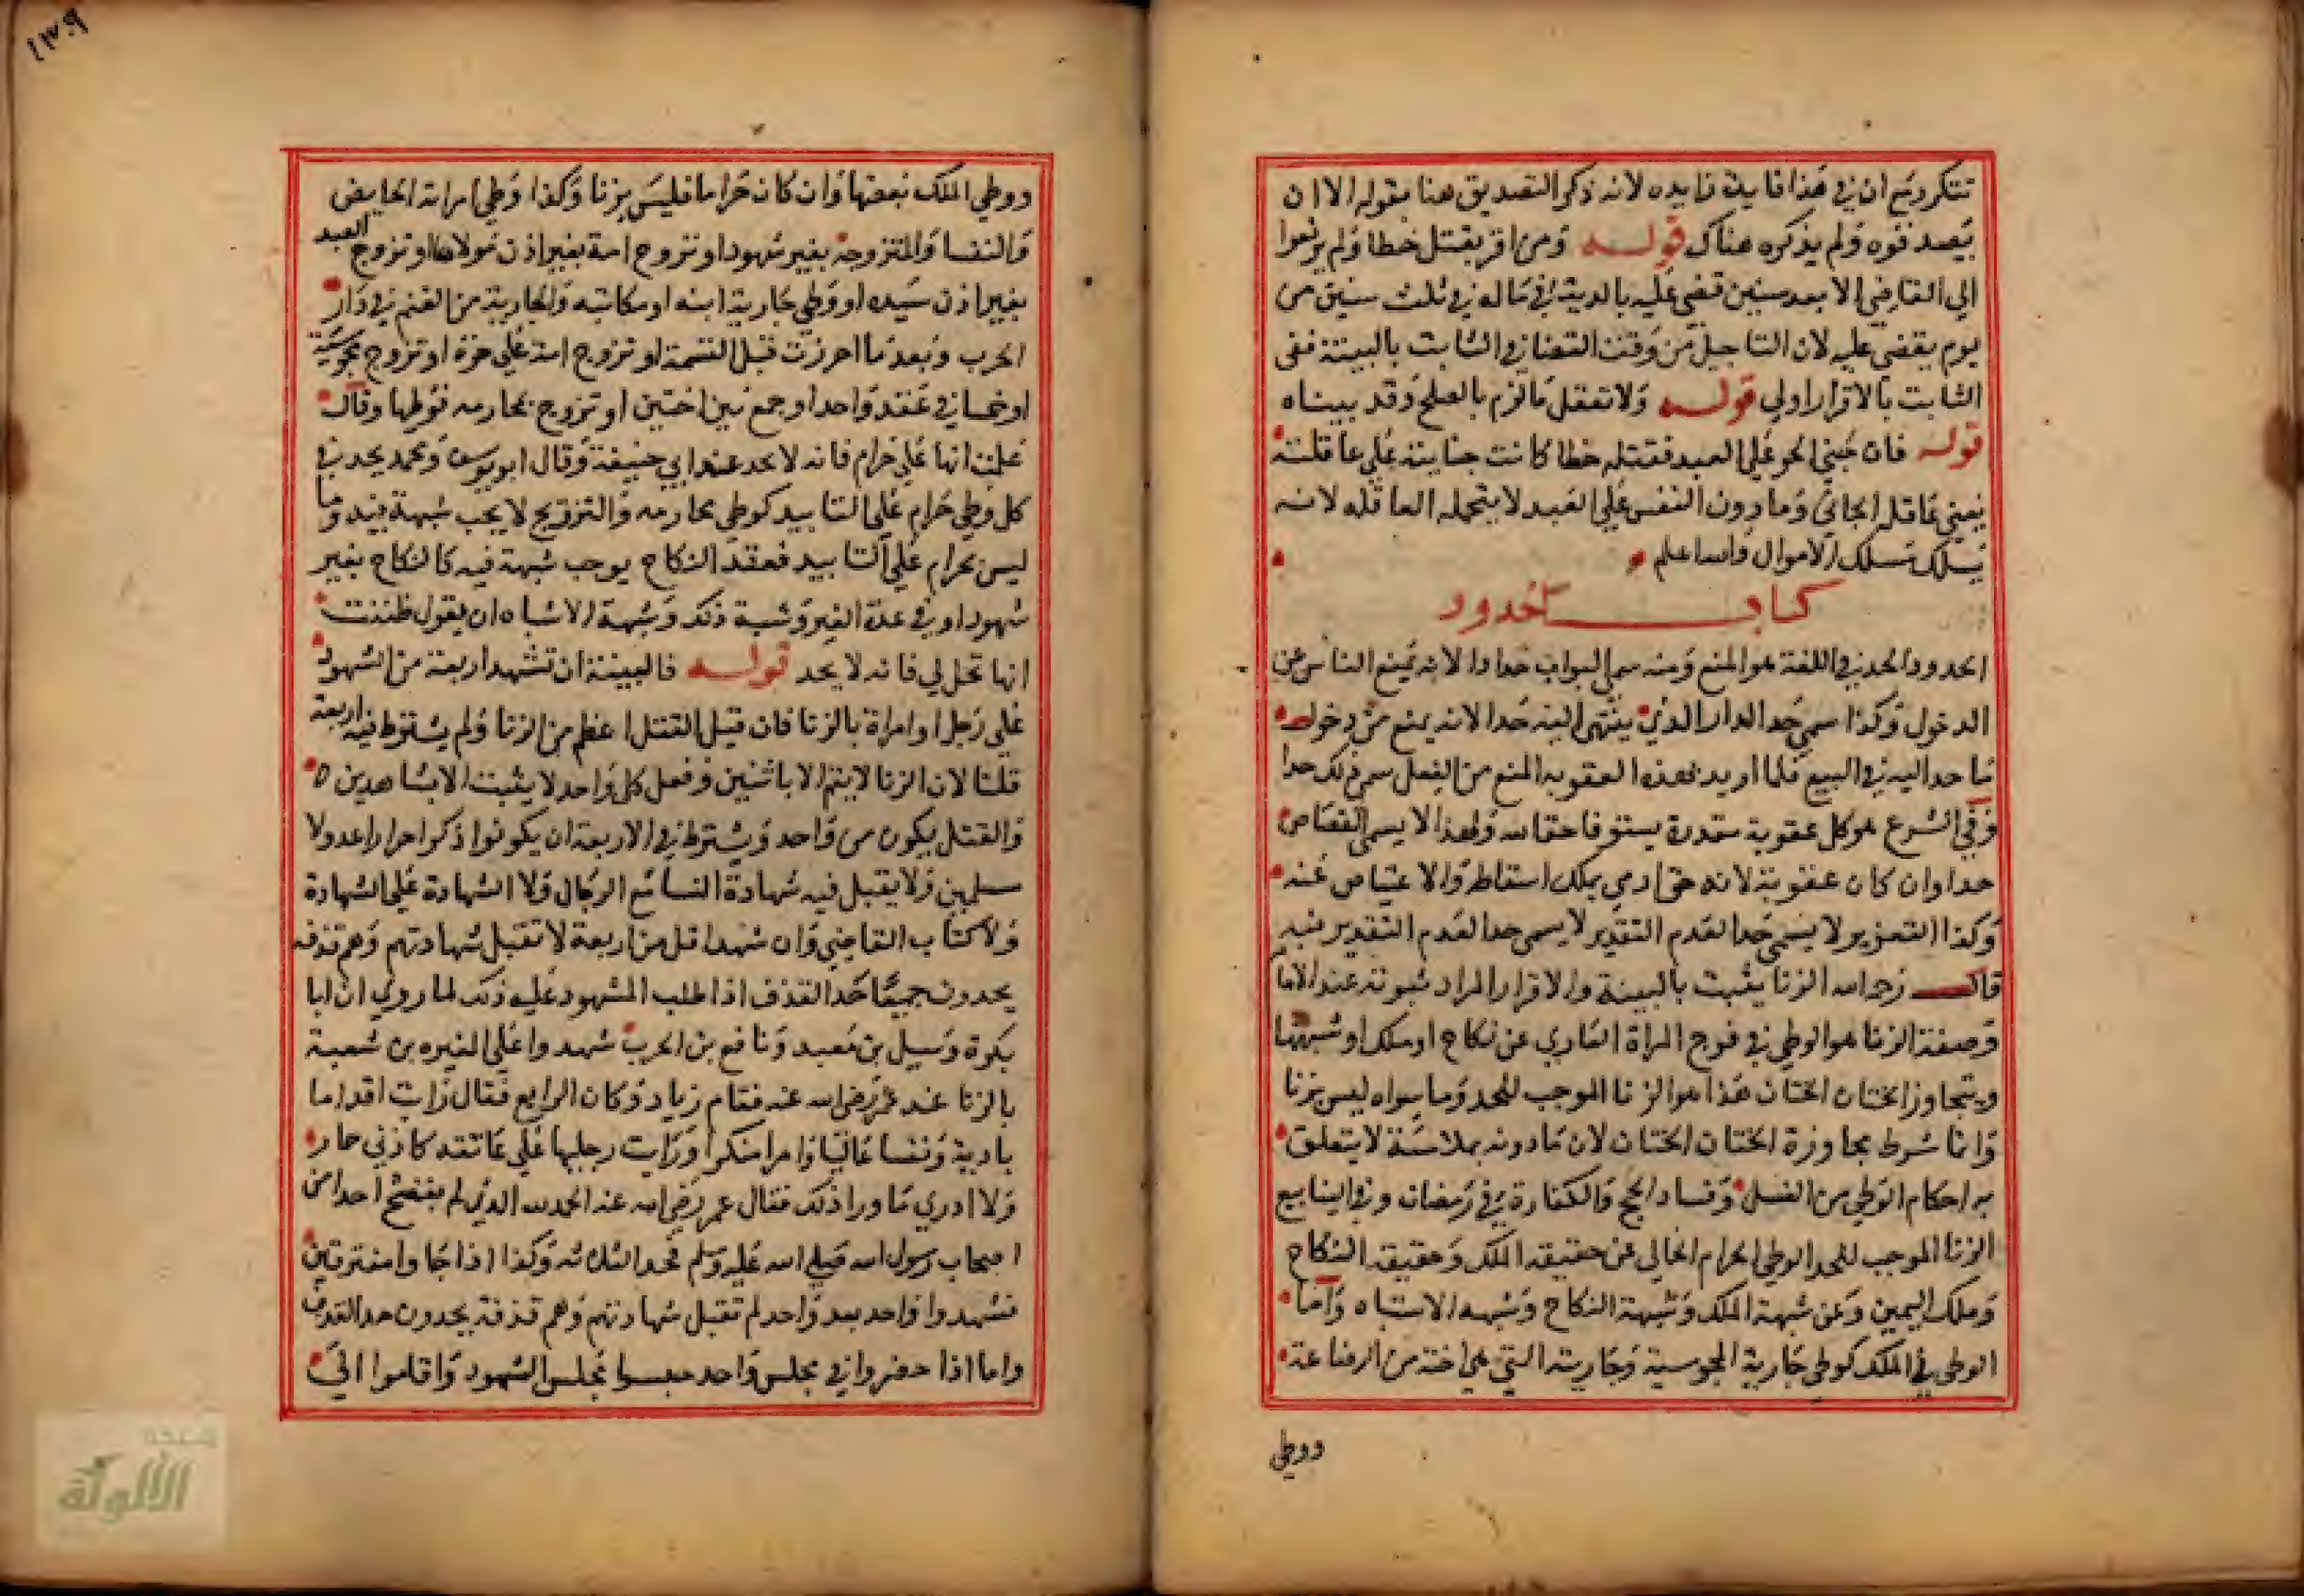 تتكرر نعم ان في هذا فايدة زايده لانه ذكر التصديق هنا بقوله الا ان
يصدقوه ولم يذكره هناك قوله ومن اقر بقتل خطا ولم يرفعوا
الي القاضي الا بعد سنين قضي عليه بالدية في ماله في ثلث سنين من
يوم يقضي عليه لان التاجيل من وقت القضا في الثابت بالبينة ففي
الثابت بالاقرار اولي قوله ولا تعقل ما لزم بالصلح وقد بيناه
قوله فان جني الحر علي العبد فقتله خطا كانت جنايته علي عاقلته
يعني عاقلة الجاني وما دون النفس علي العبد لا يتحمله العاقله لانه
يسلك مسلك الاموال والله اعلم
كتاب الحدود
الحدود الحد في اللغة هو المنع ومنه سمي البواب حدادا لانه يمنع الناس عن
الدخول وكذا سمي حد الدار الذي ينتهي اليه حدا لانه يمنع من دخول
ما حد اليه في البيع فلما اريد بهذه العقوبه المنع من الفعل سمي ذلك حدا
وفي الشرع هو كل عقوبة مقدرة يستوفا حقا لله ولهذا لا يسمي القصاص
حدا وان كان عقوبة لانه حق ادمي يملك اسقاطه والاعتياض عنه
وكذا التعزير لا يسمي حدا لعدم التقدير لا يسمي حدا لعدم التقدير فيه
قال رحمه الله الزنا يثبت بالبينة والاقرار المراد ثبوته عند الاما
وصفة الزنا هو الوطي في فرج المراة العاري عن نكاح او ملك او شبهتهما
ويتجاوز الختان الختان هذا هو الزنا الموجب للحد وما سواه ليس بزنا
وانما شرط مجاوزة الختان الختان لان ما دونه ملامسة لا يتعلق
به احكام الوطي من الغسل وفساد الحج والكفارة في رمضان وفي الينابيع
الزنا الموجب للحد الوطي الحرام الخالي عن حقيقة الملك وحقيقة النكاح
وملك اليمين وعن شبهة الملك وشبهة النكاح وشبهه الاشتباه واما
الوطي في الملك كوطي جارية المجوسية وجاريته التي هي اخته من الرضاعة
ووطي
١٣٩
ووطي الملك بعضها وان كان حراما فليس بزنا وكذا وطي امراته الحايض
والنفسا والمتزوجة بغير شهود او تزوج امة بغير اذن مولاها او تزوج العبد
بغير اذن سيده او وطي جارية ابنه او مكاتبه والجارية من الغنم في دار
الحرب وبعد ما احرزت قبل القسمة او تزوج امة علي حرة او تزوج مجوسية
او خمسا في عقد واحد او جمع بين اختين او تزوج بمحارمه فوطيها وقال
علمت انها علي حرام فانه لا يحد عند ابي حنيفة وقال ابو يوسف ومحمد يحد في
كل وطي حرام علي التابيد كوطي محارمه والتزويج لا يجب شبهة فيه وما
ليس بحرام علي التابيد فعقد النكاح يوجب شبهة فيه كالنكاح بغير
شهود او في عدة الغير وشبه ذلك وشبهة الاشباه ان يقول ظننت
انها تحل لي فانه لا يحد قوله فالبينة ان تشهد اربعة من الشهود
علي رجل او امراة بالزنا فان قيل القتل اعظم من الزنا ولم يشترط فيه اربعة
قلنا لان الزنا لا يتم الا باثنين وفعل كل واحد لا يثبت الا بشاهدين
والقتل يكون من واحد ويشترط في الاربعة ان يكونوا ذكرا احرارا عدولا
مسلمين ولا يقبل فيه شهادة النسا مع الرجال ولا الشهادة علي الشهادة
ولا كتاب القاضي وان شهد اقل من اربعة لا تقبل شهادتهم وهم قذفه
يحدون جميعا حد القذف اذا طلب المشهود عليه ذلك لما روي ان ابا
بكرة وسبل بن معبد ونافع بن الحرث شهدوا علي المغيره بن شعبة
بالزنا عند عمر رضي الله عنه فقام زياد وكان الرابع فقال رايت اقداما
بادية ونفسا عاليا وامرا منكرا ورايت رجليها علي عاتقه كاذني حمار
ولا ادري ما ورا ذلك فقال عمر رضي الله عنه الحمد لله الذي لم يفضح احدا من
اصحاب رسول الله صلي الله عليه وسلم فحد الثلاثه وكذا اذا جاوا متفرقين
فشهدوا واحد بعد واحد لم تقبل شهادتهم وهم قذفة يحدون حد القذف
واما اذا حضروا في مجلس واحد مجلس الشهود واقاموا الي